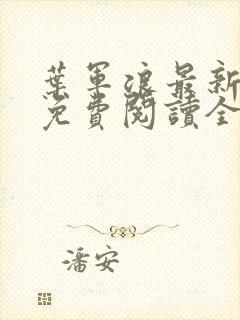 葉軍浪最新
免費閱讀全
潘安